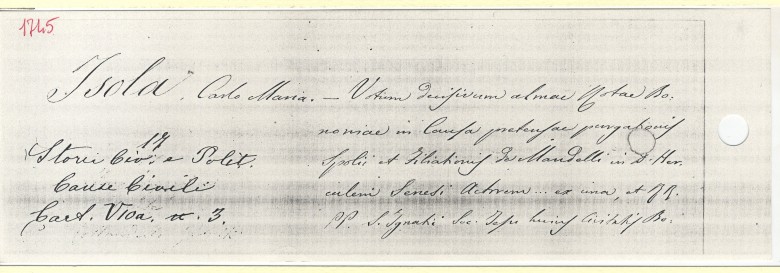 1745
Isola, Carlo Maria. — Votum decisivum almae Rotae Bo-
noniae in Causa pretensae purgationis
Spolii et Filiationis de Mandelli in D. Her-
culem Senesi Actorem... ex una, et RR.
PP. S. Ignatii Soc. Jesu huius Civitatis Bo-
17
Storia Civ. e Polit.
Cause Civili
Cart. V
n. 3.